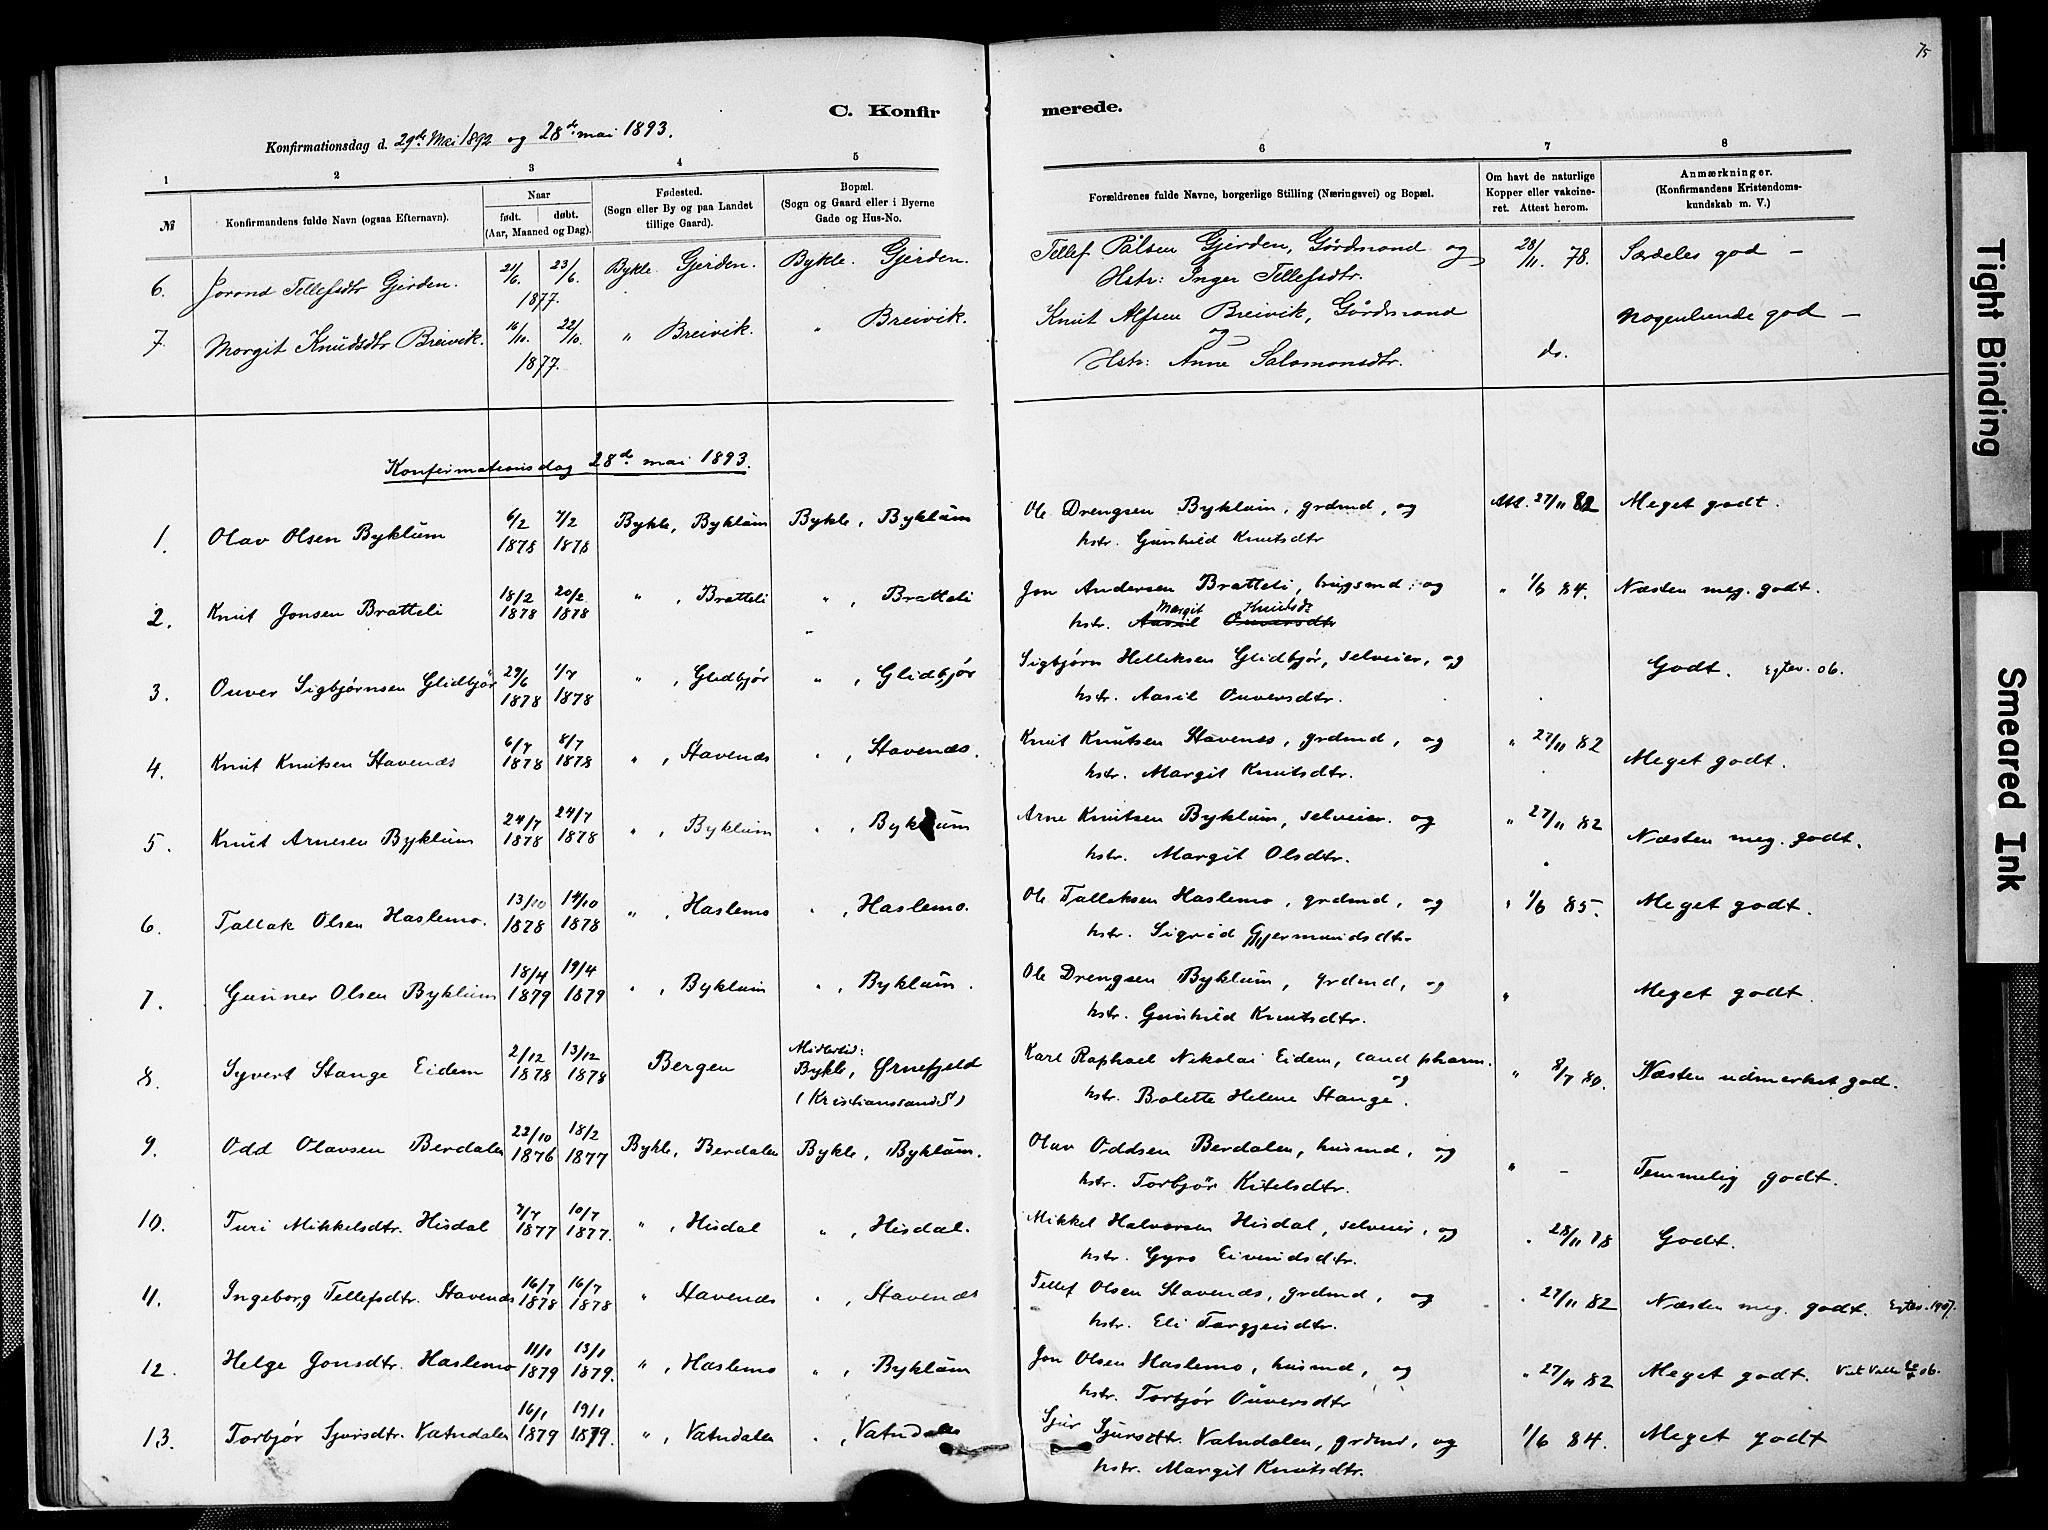 75
C. Konfir merede.
Konfirmationsdag d. 29de Mai 1892 og 28de mai 1893.
1 2 3 4 5 6 7 8
№
Konfirmandens fulde Navn (ogsaa Efternavn).
Naar
født. døbt.
(Aar, Maaned og Dag).
Fødested.
(Sogn eller By og paa Landet
tillige Gaard).
Bopæl.
(Sogn og Gaard eller i Byerne
Gade og Hus-No.
Forældrenes fulde Navne, borgerlige Stilling (Næringsvei) og Bopæl.
Om havt de naturlige
Kopper eller vakcine-
ret. Attest herom.
Anmærkninger.
(Konfirmandens Kristendoms-
kundskab m. V.)
6. Jorond Tellefsdtr Gjerden. 21/6. 23/6. 1877. Bykle. Gjerden. Bykle. Gjerden. Tellef Pålsen Gjerden, Gårdmand og 28/11. 78. Særdeles god –
Hstr: Inger Tellefsdtr.
7. Margit Knudsdtr Breivik. 16/10. 22/10. 1877. " Breivik. " Breivik. Knut Alfsen Breivik, Gårdmand nogenlunde god –
og
Hstr: Anne Salomonsdtr. do.
Konfirmationsdag 28de mai 1893.
1. Olav Olsen Byklum 6/2 1878 7/2 1878 Bykle, Byklum Bykle, Byklum Ole Drengsen Byklum, grdmd, og Att. 27/11 82 Meget godt.
hstr. Gunhild Knutsdtr
2. Knut Jonsen Bratteli 18/2 1878 20/2 1878 " , Bratteli " , Bratteli Jon Andersen Bratteli, brugsmd. og " 1/6 84. Næsten meg. godt.
Margit Knutsd.
hstr. Aasil Ouversdtr
3. Ouver Sigbjørnsen Glidbjør 29/6 1878 1/7 1878 " , Glidbjør " , Glidbjør Sigbjørn Helleksen Glidbjør, selveier, og Godt. Egtev. 06.
hstr. Aasil Ouversdtr.
4. Knut Knutsen Stavenes 6/7 1878 8/7 1878 " , Stavenes " , Stavenes. Knut Knutsen Stavenes, grdmd, og " 27/11 82 Meget godt.
hstr. Margit Knutsdtr.
5. Knut Arnesen Byklum 24/7 1878 24/7 1878 " , Byklum " , Byklum Arne Knutsen Byklum, selveier. og " 27/11 82 Næsten meg. godt.
hstr. Margit Olsdtr.
6. Tallak Olsen Haslemo. 13/10 1878 14/10 1878 " , Haslemo " , Haslemo. Ole Talleksen Haslemo, grdmd, og " 1/6 85. Meget godt.
hstr. Sigrid Gjermundsdtr
7. Gunner Olsen Byklum 18/4 1879 19/4 1879 " , Byklum " , Byklum. Ole Drengsen Byklum, grdmd, og " Meget godt.
hstr. Gunhild Knutsdtr.
8. Syvert Stange Eidem 2/12 1878 13/12 1878 Bergen Midlertid: Bykle, Ørnefjeld (Kristianssand S) Karl Raphael Nikolai Eidem, cand pharm. og " 8/7 80. Næsten udmerket god.
hstr. Bolette Helene Stange.
9. Odd Olavsen Berdalen 22/10 1876 18/2 1877 Bykle, Berdalen Bykle, Byklum. Olav Oddsen Berdalen, husmd, og " – Temmelig godt.
hstr. Torbjør Kitelsdtr.
10. Turi Mikkelsdtr. Hisdal 7/7 1877 10/7 1877. " , Hisdal " , Hisdal. Mikkel Halvorsen Hisdal, selveier, og " 28/11 78 Godt.
hstr. Gyro Eivindsdtr.
11. Ingeborg Tellefsdtr. Stavenes 16/7 1878 16/7 1878 " Stavenes " , Stavenes Tellef Olsen Stavenes, grdmd, og " 27/11 82 Næsten meg. godt. Egtev. 1907.
hstr. Eli Targjeisdtr.
12. Helge Jonsdtr. Haslemo 11/1 1879 13/1 1879. " , Haslemo " , Byklum Jon Olsen Haslemo, husmd, og " 27/11 82 Meget godt. Viet Valle 06.
hstr. Torbjør Ouversdtr
13. Torbjør Sjursdtr. Vatndalen 16/1 1879 19/1 1879. " , Vatndalen " , Vatndalen Sjur Sjursdtr. Vatndalen, grdmd, og 1/6 84. Meget godt
hstr. Margit Knutsdtr.
Tight Binding
Smeared Ink